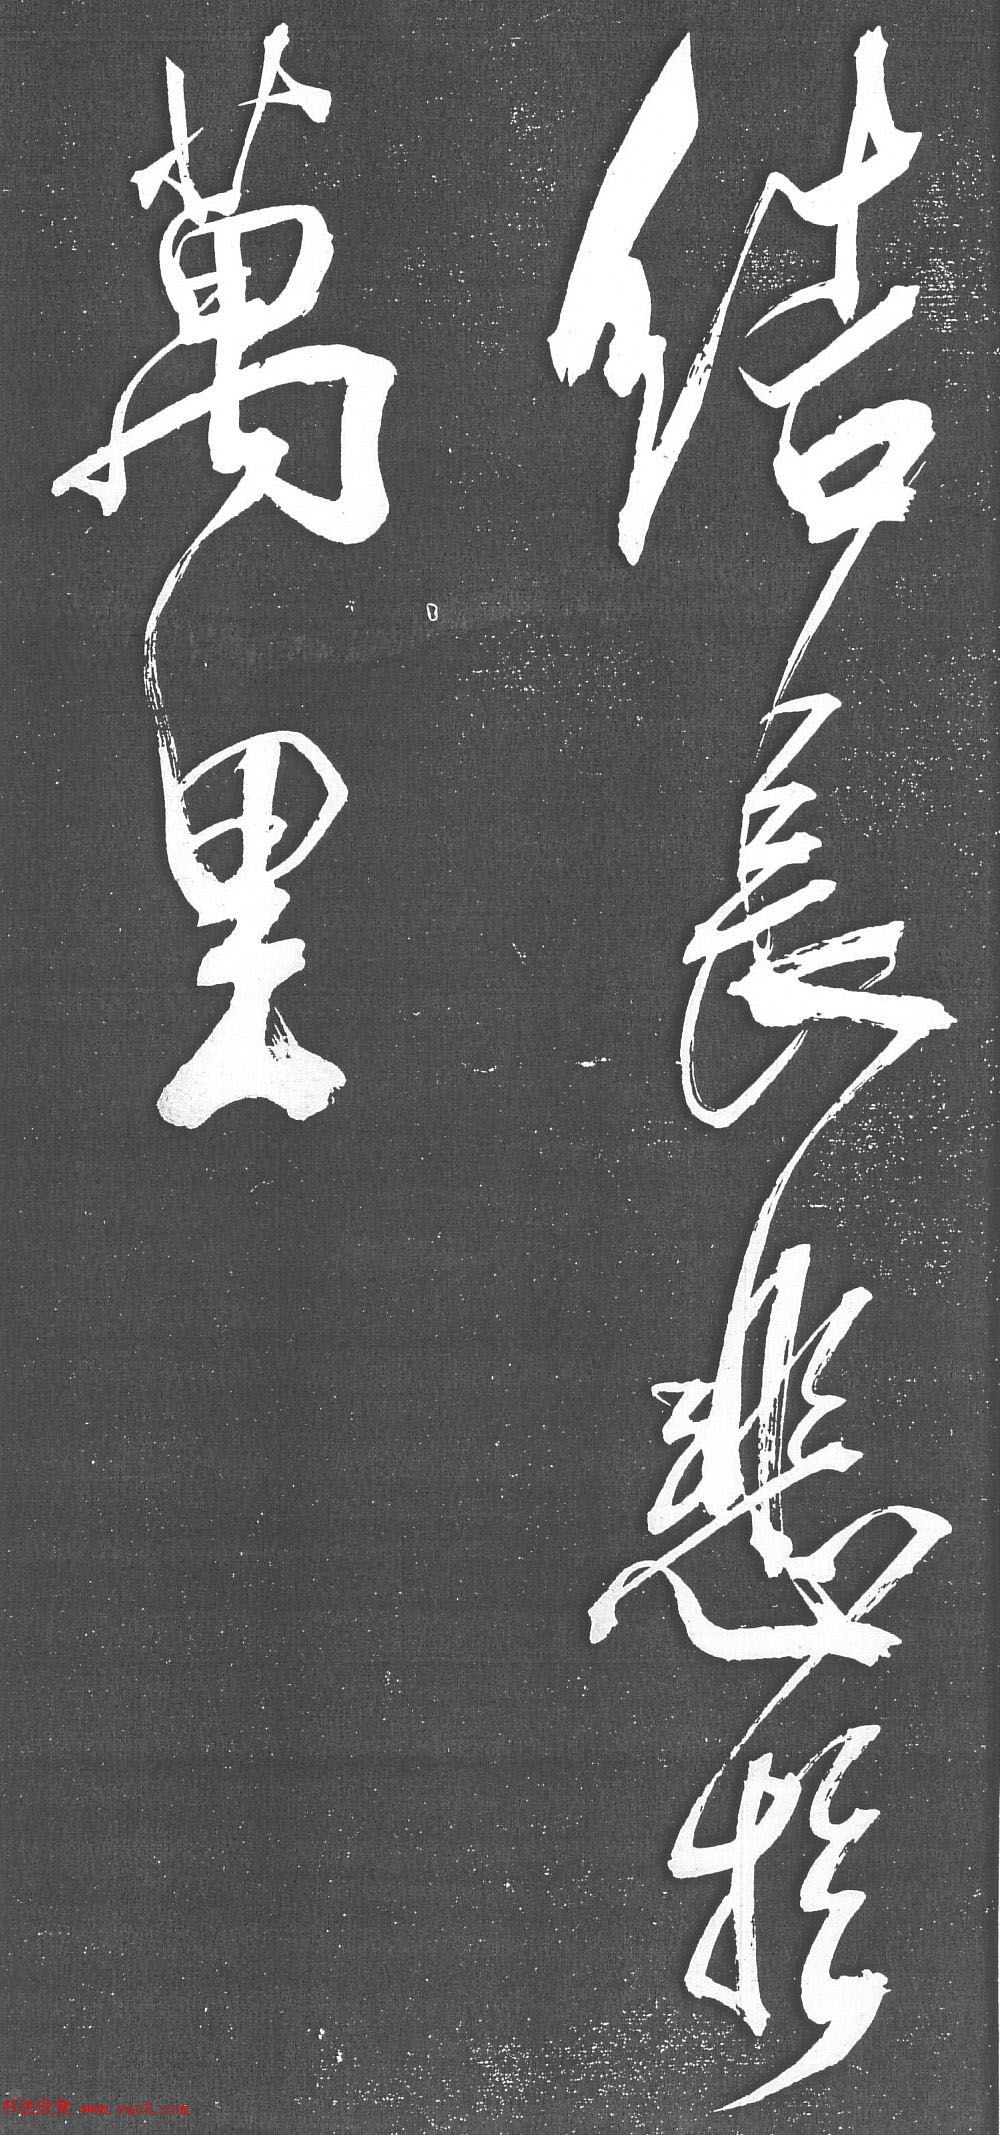 结長悲於
萬里
书法欣赏 www.yac8.com